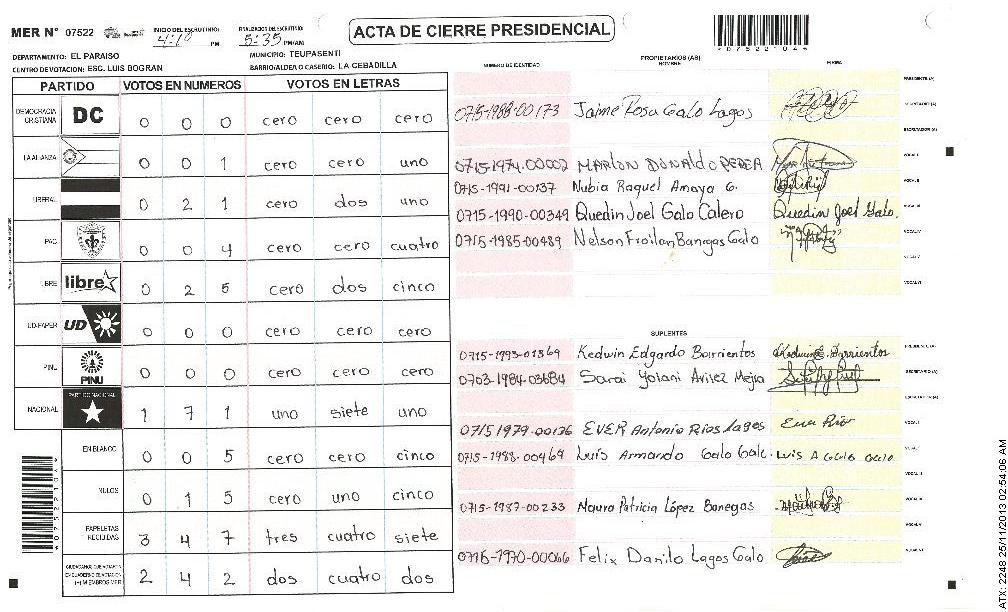 MER N° 07522
INICIO DEL ESCRUTINIO: 4:10 PM
FINALIZACION DEL ESCRUTINIO: 5:35 PM/AM
ACTA DE CIERRE PRESIDENCIAL
DEPARTAMENTO: EL PARAISO
MUNICIPIO: TEUPASENTI
CENTRO DE VOTACION: ESC. LUIS BOGRAN
BARRIO/ALDEA O CASERIO: LA CEBADILLA
PARTIDO VOTOS EN NUMEROS VOTOS EN LETRAS
DEMOCRACIA CRISTIANA DC 0 0 0 cero cero cero
LA ALIANZA 0 0 1 cero cero uno
LIBERAL 0 2 1 cero dos uno
PAC 0 0 4 cero cero cuatro
LIBRE libre 0 2 5 cero dos cinco
UD-FAPER UD 0 0 0 cero cero cero
PINU PINU 0 0 0 cero cero cero
NACIONAL PARTIDO NACIONAL 1 7 1 uno siete uno
EN BLANCO 0 0 5 cero cero cinco
NULOS 0 1 5 cero uno cinco
PAPELETAS RECIBIDAS 3 4 7 tres cuatro siete
CIUDADANOS QUE VOTARON EN CUADERNO DE VOTACION (+) MIEMBROS MER 2 4 2 dos cuatro dos
PROPIETARIOS (AS)
NUMERO DE IDENTIDAD NOMBRE FIRMA
PRESIDENTE (A)
0715-1988-00173 Jaime Rosa Galo Lagos SECRETARIO (A)
ESCRUTADOR (A)
0715-1974-00002 MARLON DONALDO PEREA VOCAL I
0715-1991-00137 Nubia Raquel Amaya G. VOCAL II
0715-1990-00349 Quedin Joel Galo Calero Quedin Joel Galo. VOCAL III
0715-1985-00489 Nelson Froilan Banegas Galo VOCAL IV
VOCAL V
VOCAL VI
SUPLENTES
0715-1993-01369 Kedwin Edgardo Barrientos Kedwin E. Barrientos PRESIDENTE (A)
0703-1984-03684 Sarai Yolani Avilez Mejia SECRETARIO (A)
ESCRUTADOR (A)
0715 1979-00136 EVER Antonio Rios Lagos Ever Rios VOCAL I
0715-1988-00469 Luis Armando Galo Galo Luis A Galo Galo VOCAL II
0715-1987-00233 Maura Patricia López Banegas
0715-1970-00066 Felix Danilo Lagos Galo
ATX: 2248 25/11/2013 02:54:06 AM